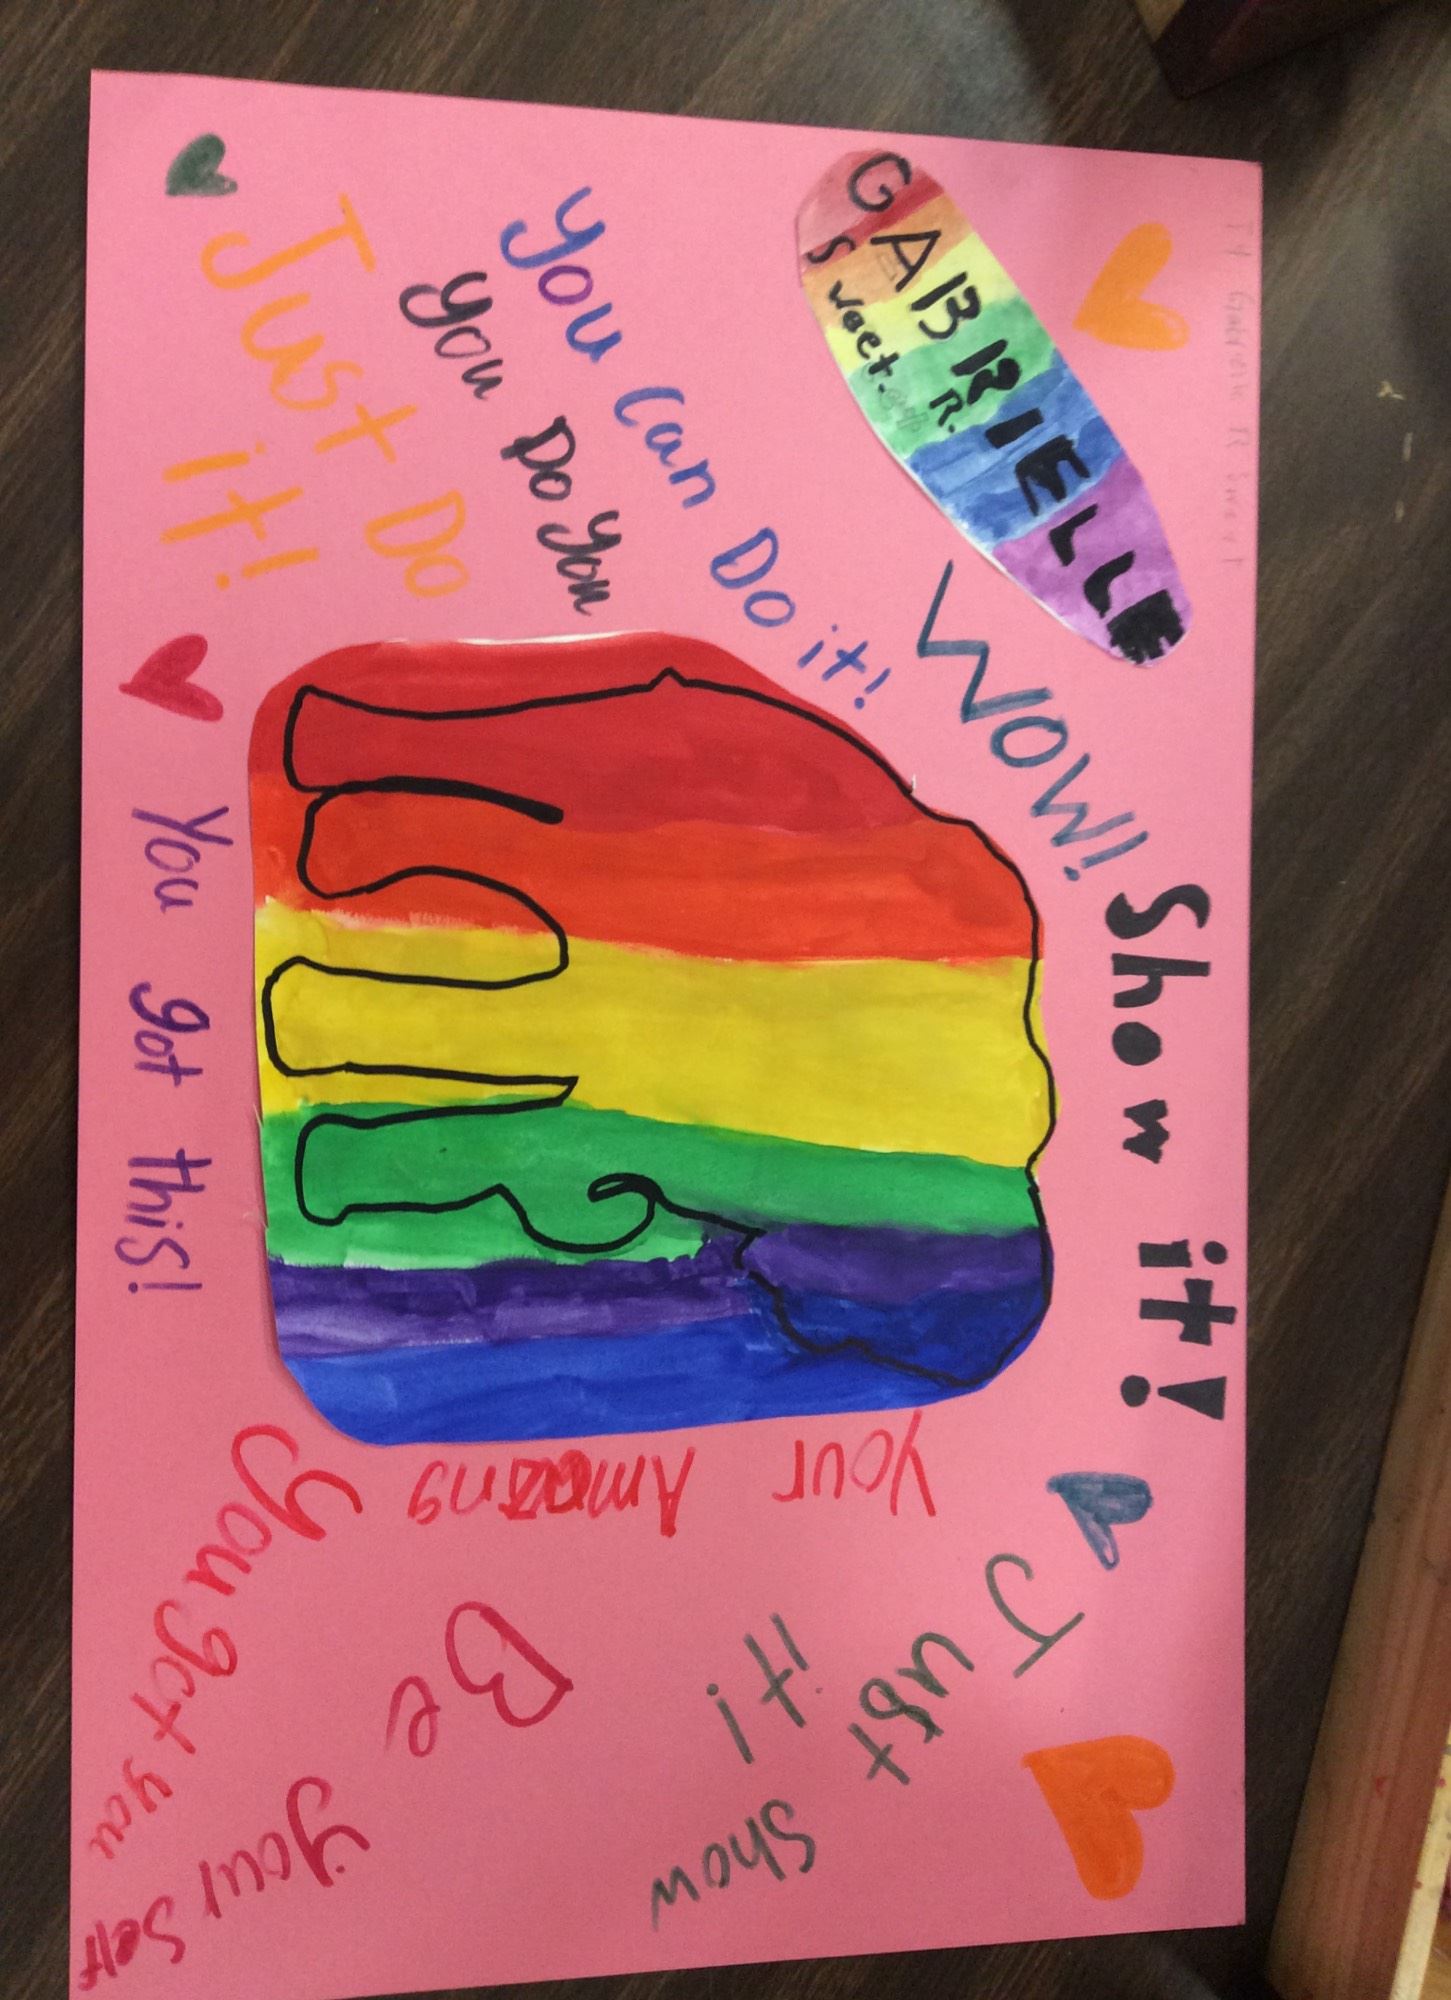 T4 Gabrielle R Sweet
GABRIELLE
Sweet. R.
WOW!
Show it!
You can Do it!
you Do you
Just Do
it!
You got this!
Your Amazing
You got you
Be
Your Self
Just
Show
it!